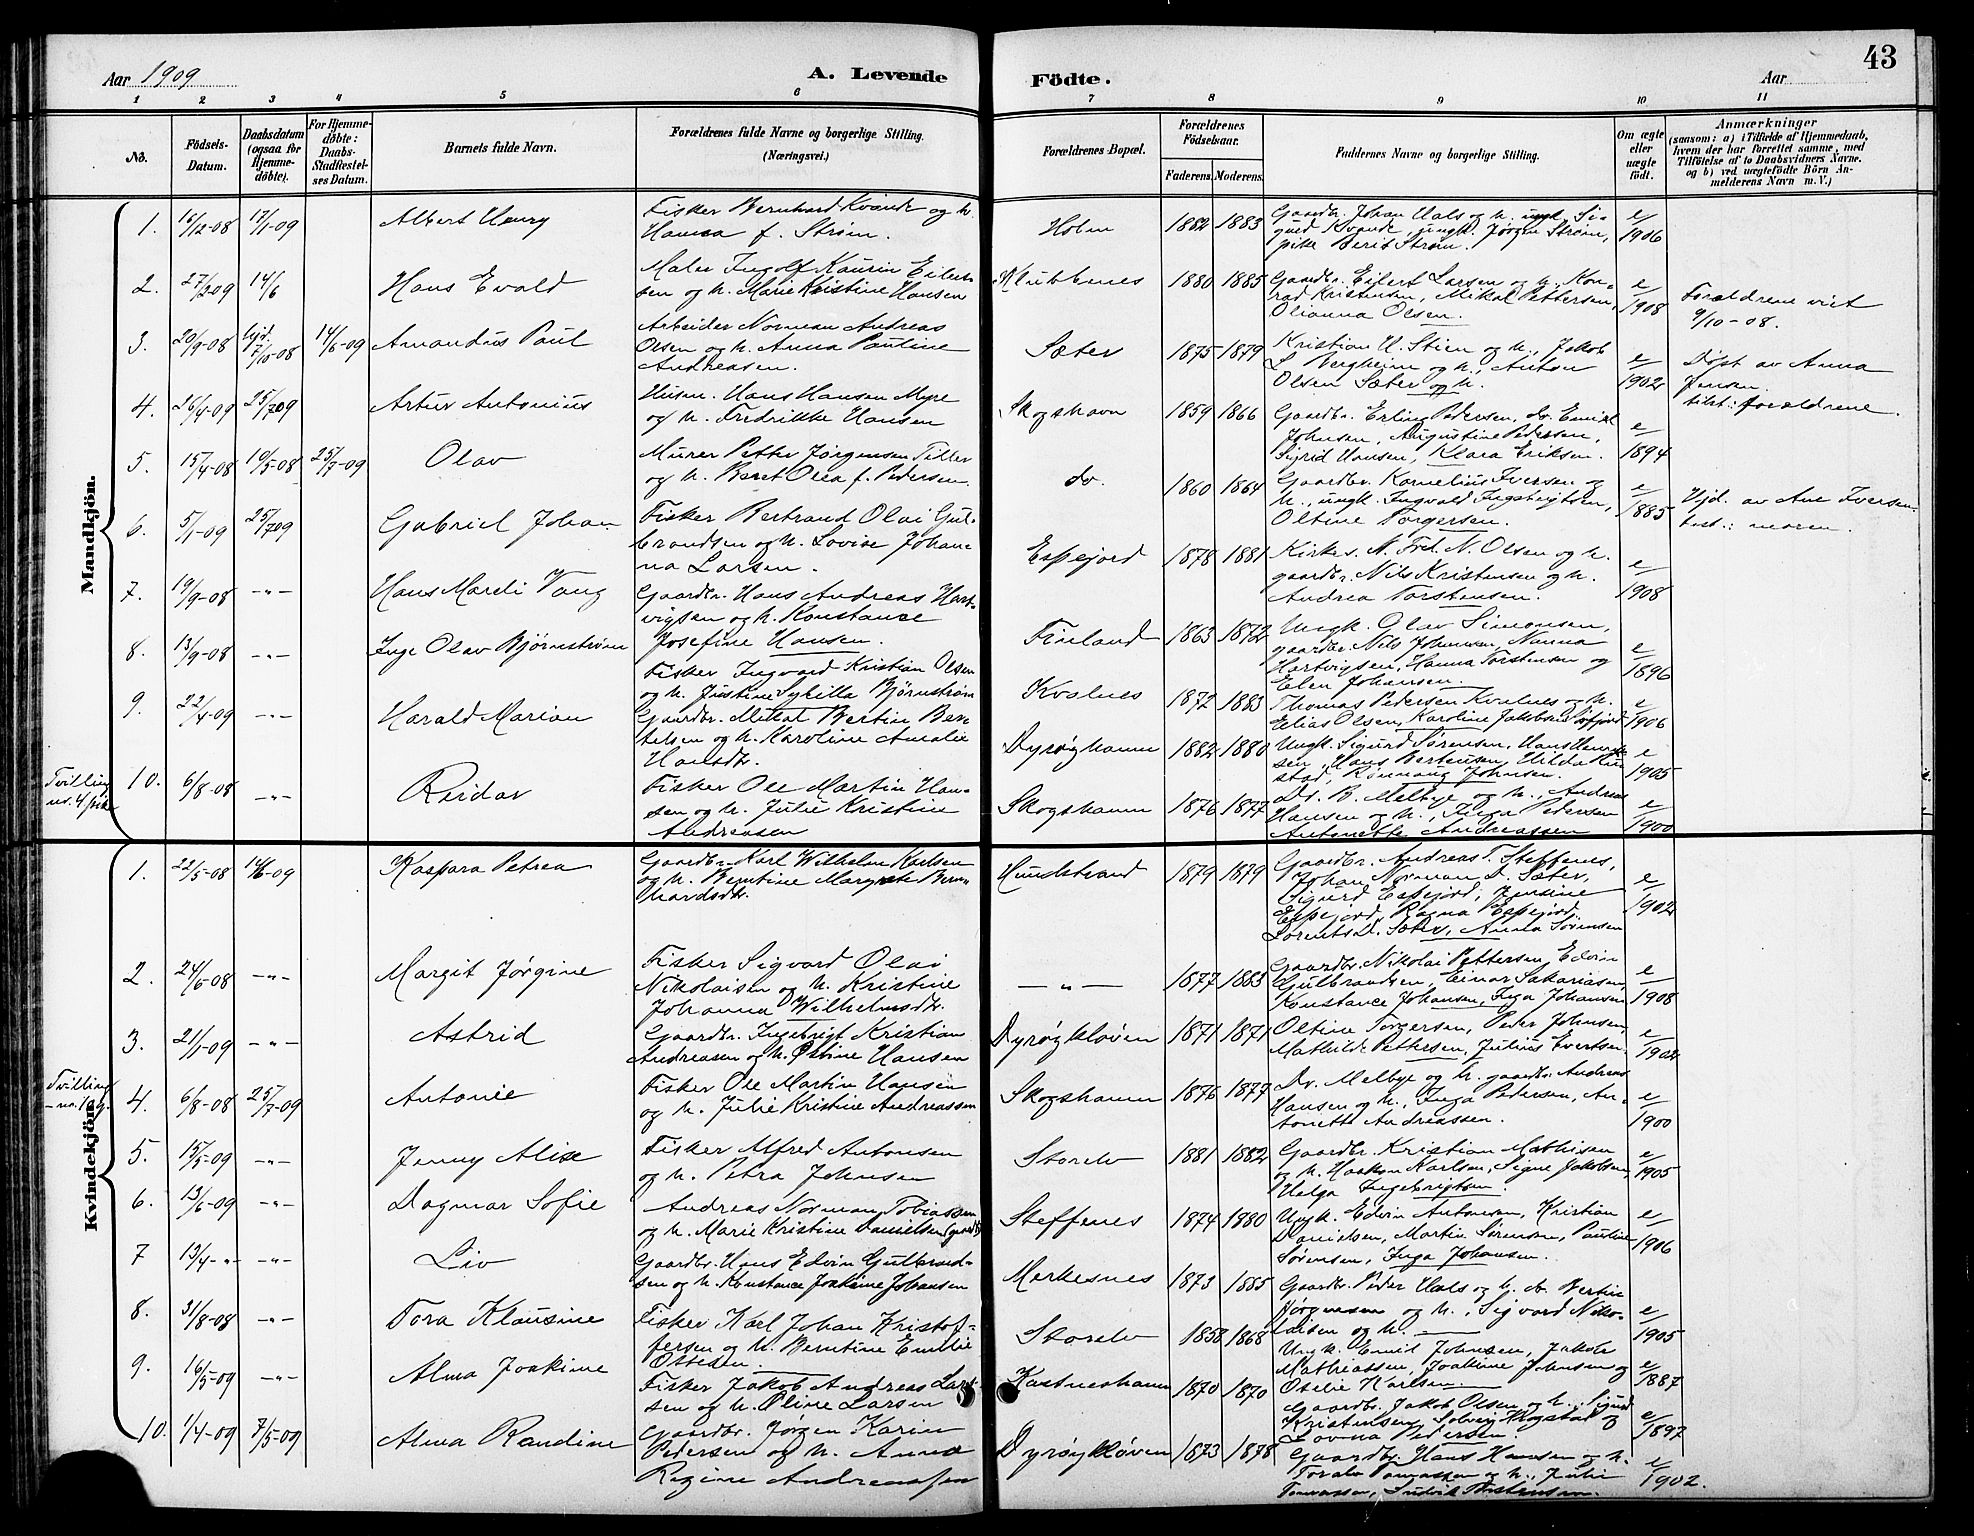 Aar 1909
A. Levende
Födte.
Aar
43
1 2 3 4 5 6 7 8 9 10 11
No.
Födsels-
Datum.
Daabsdatum
(ogsaa for
Hjemme-
döbte).
For Hjemme-
döbte:
Daabs-
Stadfæstel-
ses Datum.
Barnets fulde Navn.
Forældrenes fulde Navne og borgerlige Stilling.
(Næringsvei.)
Forældrenes Bopæl.
Forældrenes
Födselsaar.
Faderens. Moderens.
Faddernes Navne og borgerlige Stilling.
Om ægte
eller
uægte
födt.
Anmærkninger
(saasom: a) i Tilfælde af Hjemmedaab,
hvem der har forrettet samme, med
Tilföielse af to Daabsvidners Navne.
og b) ved uægtefödte Börn An-
melderens Navn m. V.)
Mandkjön.
1. 16/12-08 17/1-09 Albert Henry
Fisker Bernhard Kvande og h.
Hanna f. Strøm.
Holm 1882 1883
Gaardbr. Johan Hals og h. ungk. Si-
gurd Kvande, ungk. Jørgen Strøm,
pike Berit Strøm.
e/1906
2. 27/2 09 14/6 Hans Evald
Maler Ingolf Kaurin Eilert-
sen og h. Marie Kristine Hansen
Klubbenes 1880 1885
Gaardbr. Eilert Larsen og h. Kon-
rad Kristensen, Mikal Pettersen,
Olianna Olsen.
e/1908
Forældrene viet
9/10-08.
3. 20/9-08 hjd. 7/10-08 14/6-09 Amandus Paul
Arbeider Norman Andreas
Olsen og h. Anna Pauline
Andreasen.
Sæter 1875 1879
Kristian H. Stien og h., Jakob
L. Bergheim og h., Anton
Olsen Sæter og h.
e/1902
Døpt av Anna
Jensen.
tilst.: forældrene.
4. 26/4-09 25/7 09 Artur Antonius
Husm. Hans Hansen Myre
og h. Fredrikke Hansen
Skogshavn 1859 1866
Gaardbr. Erling Pedersen, do. Emil
Johnsen, Augustine Pedersen,
Sigrid Hansen, Klara Eriksen.
e/1894
5. 15/4-08 10/5-08 25/7-09 Olav
Murer Petter Jørgensen Tiller
og h. Beret Olea f. Pedersen.
do. 1860 1864
Gaardbr. Kornelius Iversen og
h., ungk. Ingvald Ingebrigtsen,
Oltine Torgersen.
e/1885
Hjd. av Ane Iversen
tilst.: moren.
6. 5/1-09 25/7 09 Gabriel Johan
Fisker Bertrand Olai Gul-
brandsen og h. Lovise Johan-
na Larsen.
Espejord 1878 1881
Kirkes. N. Fred. N. Olsen og h.
gaardbr. Nils Kristensen og h.
Andrea Torstensen.
e/1908
7. 19/9-08 -"- Hans Mareli Vang
Gaardbr. Hans Andreas Hart-
vigsen og h. Konstance
Josefine Hansen.
Finland 1863 1872
Ungk. Olav Simonsen,
gaardbr. Nils Johansen, Nanna
Hartvigsen, Hanna Torstensen og
Elen Johansen.
e/1896
8. 13/9-08 -"- Inge Olav Bjørnstrøm
Fisker Ingvard Kristian Olsen
og h. Justine Sybilla Bjørnstrøm
Kvalnes 1872 1883
Thomas Pedersen Kvalnes og h.
Elias Olsen, Karoline Jakobsen
e/1906
9. 22/4-09 -"- Harald Marian
Gaardbr. Mikal Bertin Ber-
telsen og h. Karoline Amalie
Hansdtr.
Dyrøyhamn 1882 1880
Ungk. Sigurd Sørensen, Hans Henrik-
sen, Hans Berteusen, Hilda Run-
stad, Rønnaug Johnsen.
e/1905
Tvilling
nr. 4 pike
10. 6/8-08 -"- Reidar
Fisker Ole Martin Han-
sen og h. Julie Kristine
Andreasen
Skogshamn 1876 1877
Dr. B. Melbye og h., Andreas
Hansen og h., Inga Pedersen
Antonette Andreassen
e/1900
Kvindekjön.
1. 22/5-08 14/6-09 Kaspara Petrea
Gaardbr. Karl Wilhelm Karlsen
og h. Berntine Margrete Bern-
hardsdtr.
Hundstrand 1879 1879
Gaardbr. Andreas T. Steffenes,
Johan Norman D. Sæter,
Sigurd Espejord, Jensine
Espejord, Ragna Espejord.
Lorents D. Sæter, Anna Sørensen
e/1902
2. 24/6-08 -"- Margit Jørgine
Fisker Sigvard Olai
Nikolaisen og h. Kristine
Johanna Wilhelmsdtr.
-"- 1877 1883
Gaardbr. Nikolai Pettersen, Edvin
Gulbrandsen, Einar Sakariasen,
Konstance Johansen, Inga Johansen
e/1908
3. 21/1-09 -"- Astrid
Gaardbr. Ingebrigt Kristian
Andreasen og h. Østine Hansen
Dyrøykløven 1871 1871
Oltine Torgersen, Peder Johnsen,
Mathilde Pettersen, Julius Evertsen.
Tvilling
4. 6/8-08 25/7-09 Antonie
Fisker Ole Martin Hansen
og h. Julie Kristine Andreassen
Skogshamn 1876 1877
Dr. Melbye og h. gaardbr. Andreas
Hansen og h., Inga Pedersen, An-
tonette Andreassen.
e/1900
5. 15/5-09 -"- Jenny Alise
Fisker Alfred Antonsen
og h. Petra Johnsen
Storelv 1881 1882
Gaardbr. Kristian Mathisen
og h. Haakon Karlsen, Signe Jakobsen,
Helga Ingebrigtsen.
e/1905
6. 13/6-09 -"- Dagmar Sofie
Andreas Norman Tobiassen
og h. Marie Kristine Danielsen (gaardb.)
Steffenes 1874 1880
Ungk. Edvin Antonsen, Kristian
Danielsen, Martin Sørensen, Pauline
Sørensen, Inga Johansen.
e/1906
7 13/4-"- -"- Liv
Gaardbr. Hans Edvin Gulbrand-
sen og h. Konstance Joakime Johansen
Merkesnes 1873 1885
Gaardbr. Peder Hals og h., do. Bertin
Jørgensen og h., Sigvard Niko-
laisen og h.
e/1905
8. 31/8-08 -"- Tora Klausine
Fisker Karl Johan Kristof-
fersen og h. Berntine Emilie
Ottesen
Storelv 1858 1868
Ungk. Emil Johnsen, Jakob
Mathiassen, Joakime Johnsen og
Otelie Karlsen.
e/1887
9. 16/5-09 -"- Alma Joakime
Fisker Jakob Andreas Lar-
sen og h. Oline Larsen
Kastneshamn 1870 1870
Gaardbr. Jakob Olsen og h., Sigurd
Kristensen, Solveig Hogstad og
Lovina Pedersen.
e/1897
10. 1/4-09 7/5-09 Alma Randine
Gaardbr. Jørgen Karin
Pedersen og h. Anna
Regine Andreassen
Dyrøykløven 1873 1878
Gaardbr. Hans Hansen og h.
Toralv Tomassen og h., Julie
Tomassen, Ludvik Torstensen.
e/1902.